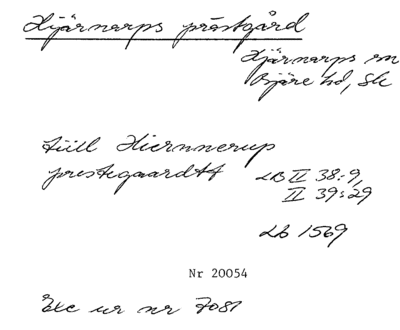 Hjärnarps prästgård
Hjärnarps sn
Bjäre hd, Sk
till Hiernnerup
prestegaardtt LB II 38:9,
II 39:29
Lb 1569
Nr 20054
Exc ur nr 7081